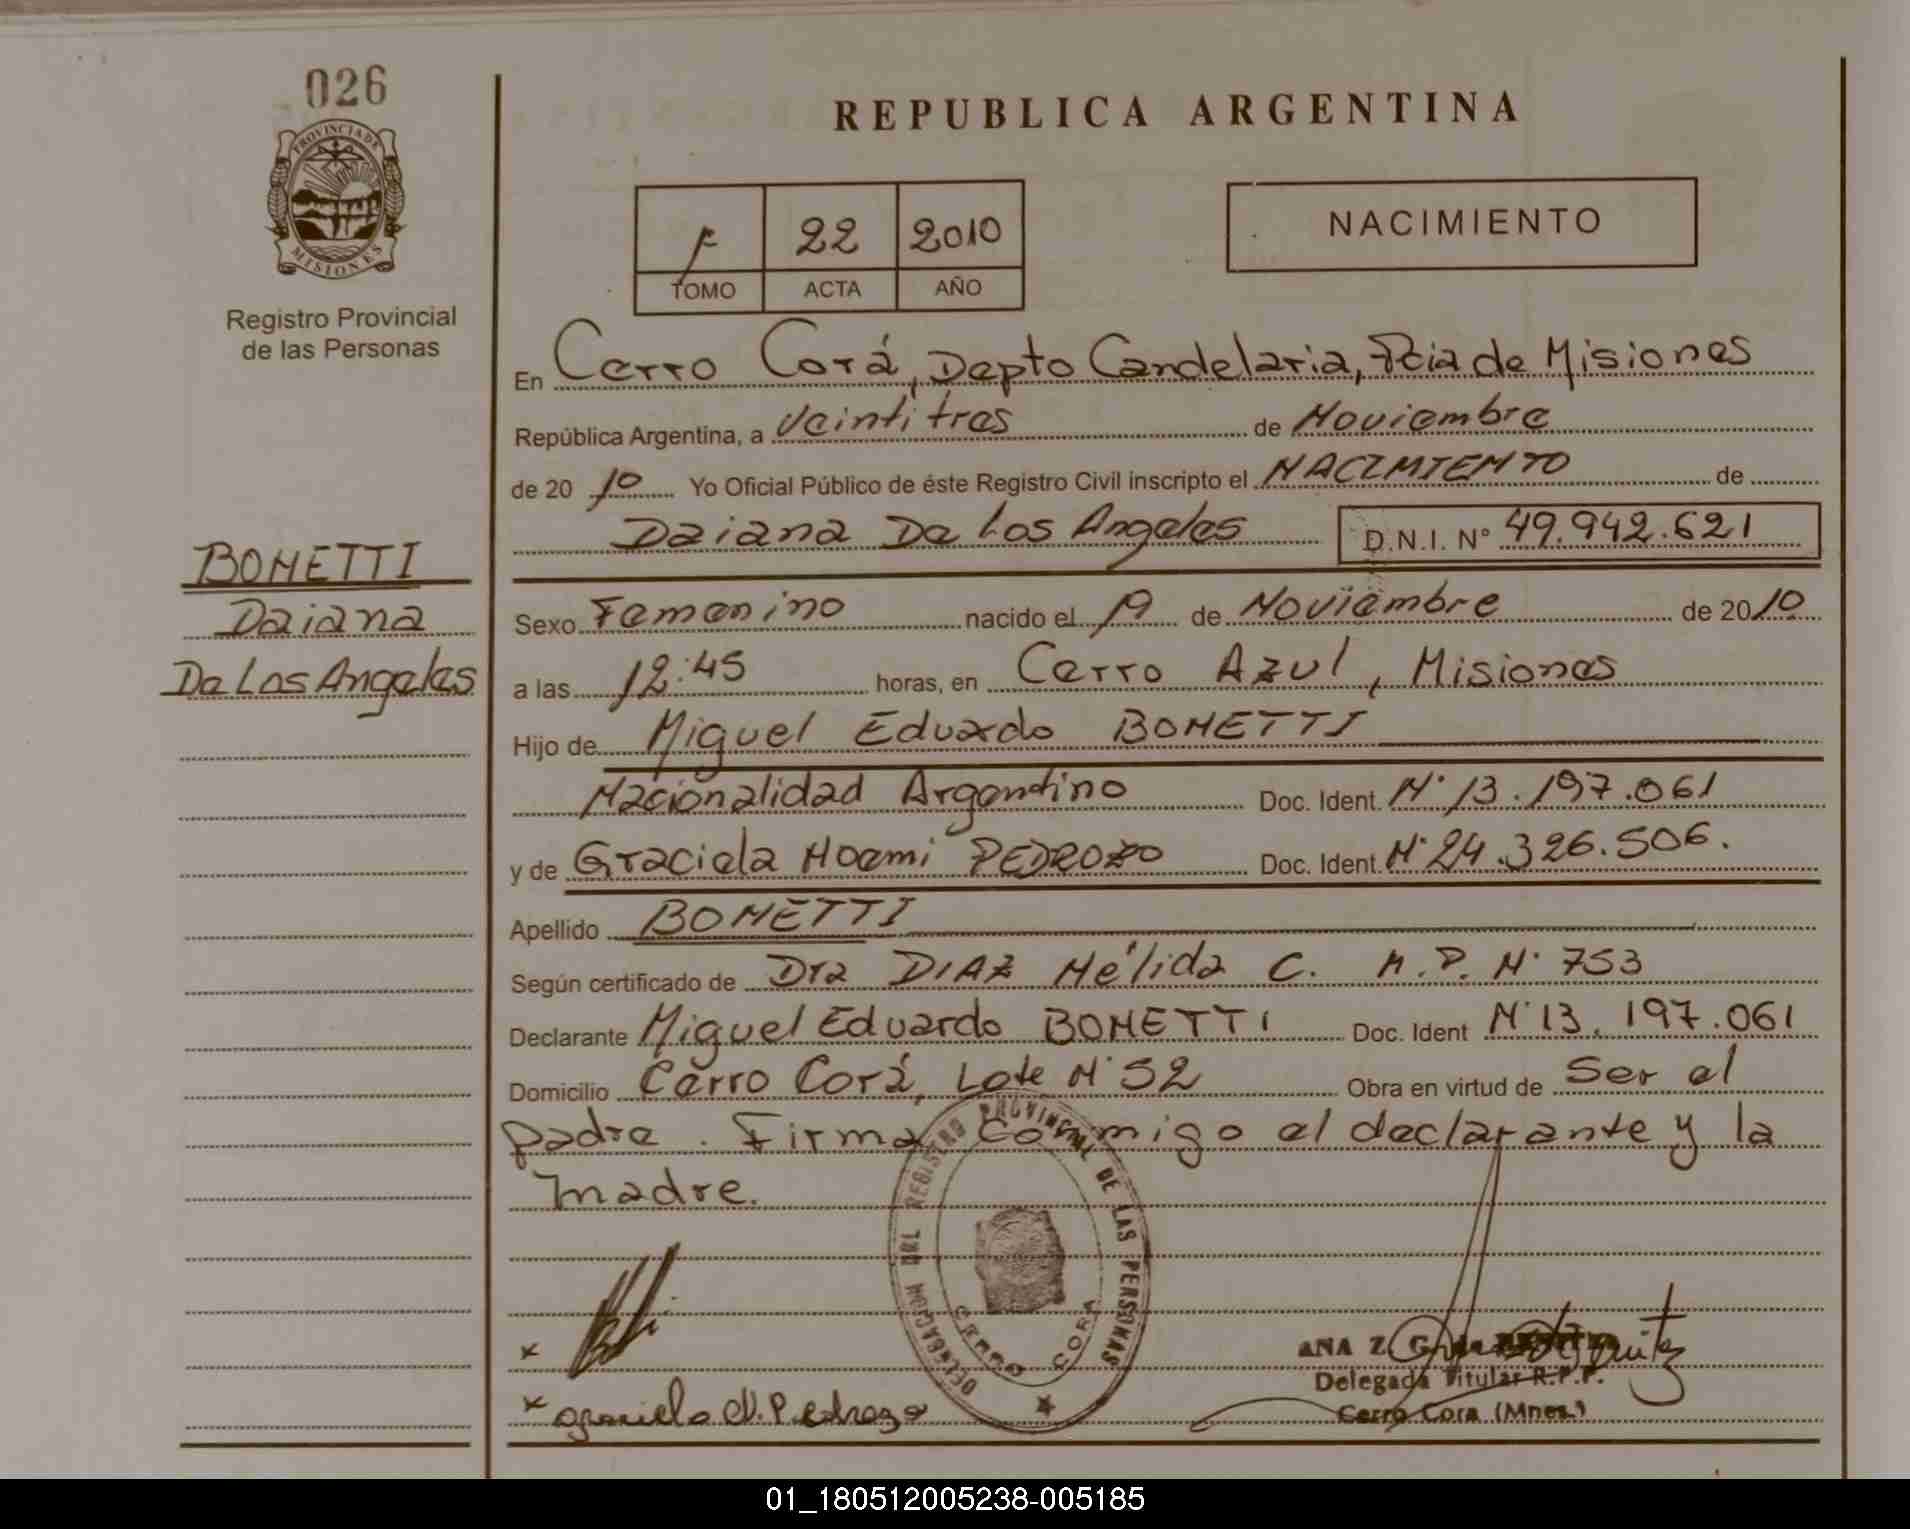 026
PROVINCIA DE
MISIONES
Registro Provincial
de las Personas
BONETTI
Daiana
De Los Angeles
REPUBLICA ARGENTINA
22 2010
TOMO ACTA AÑO
NACIMIENTO
En Cerro Corá, Depto Candelaria, Pcia de Misiones
República Argentina, a Veintitres de Noviembre
de 20 10 Yo Oficial Público de éste Registro Civil inscripto el NACIMIENTO de
Daiana De Los Angeles D.N.I. N° 49.942.621
Sexo Femenino nacido el 19 de Noviembre de 2010
a las 12:45 horas, en Cerro Azul, Misiones
Hijo de Miguel Eduardo BONETTI
Nacionalidad Argentino Doc. Ident. N° 13.197.061
y de Graciela Noemi PEDROZO Doc. Ident. N° 24.326.506.
Apellido BONETTI
Según certificado de Dra DIAZ Nélida C. M.P. N° 753
Declarante Miguel Eduardo BONETTI Doc. Ident N° 13.197.061
Domicilio Cerro Corá, Lote N° 52 Obra en virtud de Ser el
padre. Firma conmigo el declarante y la
madre.
DELEGACION DEL REGISTRO PROVINCIAL DE LAS PERSONAS
CERRO CORA
x
x Graciela N. Pedrozo
ANA Z. G.
Delegada Titular R.P.P.
Cerro Cora (Mnes.)
01_180512005238-005185